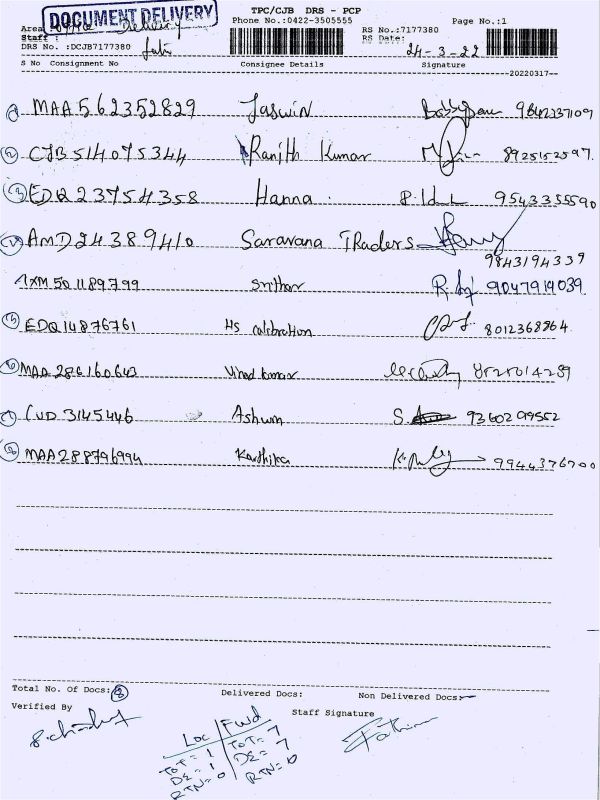 DOCUMENT DELIVERY
TPC/CJB DRS - PCP
Phone No.:0422-3505555
Page No.:1
Area
Delivery
Staff :
RS No.:7177380
RS Date:
24-3-22
DRS No. :DCJB7177380
S No Consignment No Consignee Details Signature
20220317
1 MAA562352829 Jaswin 9842237109
2 CJB514075344 Ranjith Kumar 8925152597
3 EDQ23754358 Hanna 9543355590
AMD24389410 Saravana TRaders
9843194339
1XM501189799 Srithar 9047919039
EDQ14876761 HS calibration 8012368864
MAA286160643 Vinod kumar
CUD3145446 Ashwin 9360299552
MAA288796994 Karthika 9944376700
Total No. Of Docs: 8 Delivered Docs: Non Delivered Docs:
Verified By Staff Signature
Loc Fwd
TOT = 1 TOT = 7
DE = 1 DE = 7
RTN = 0 RTN = 0